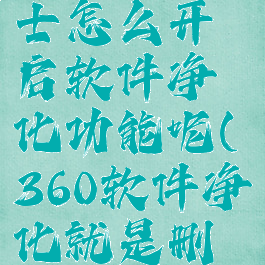 士怎么开
启软件净
化功能呢(
360软件净
化就是删